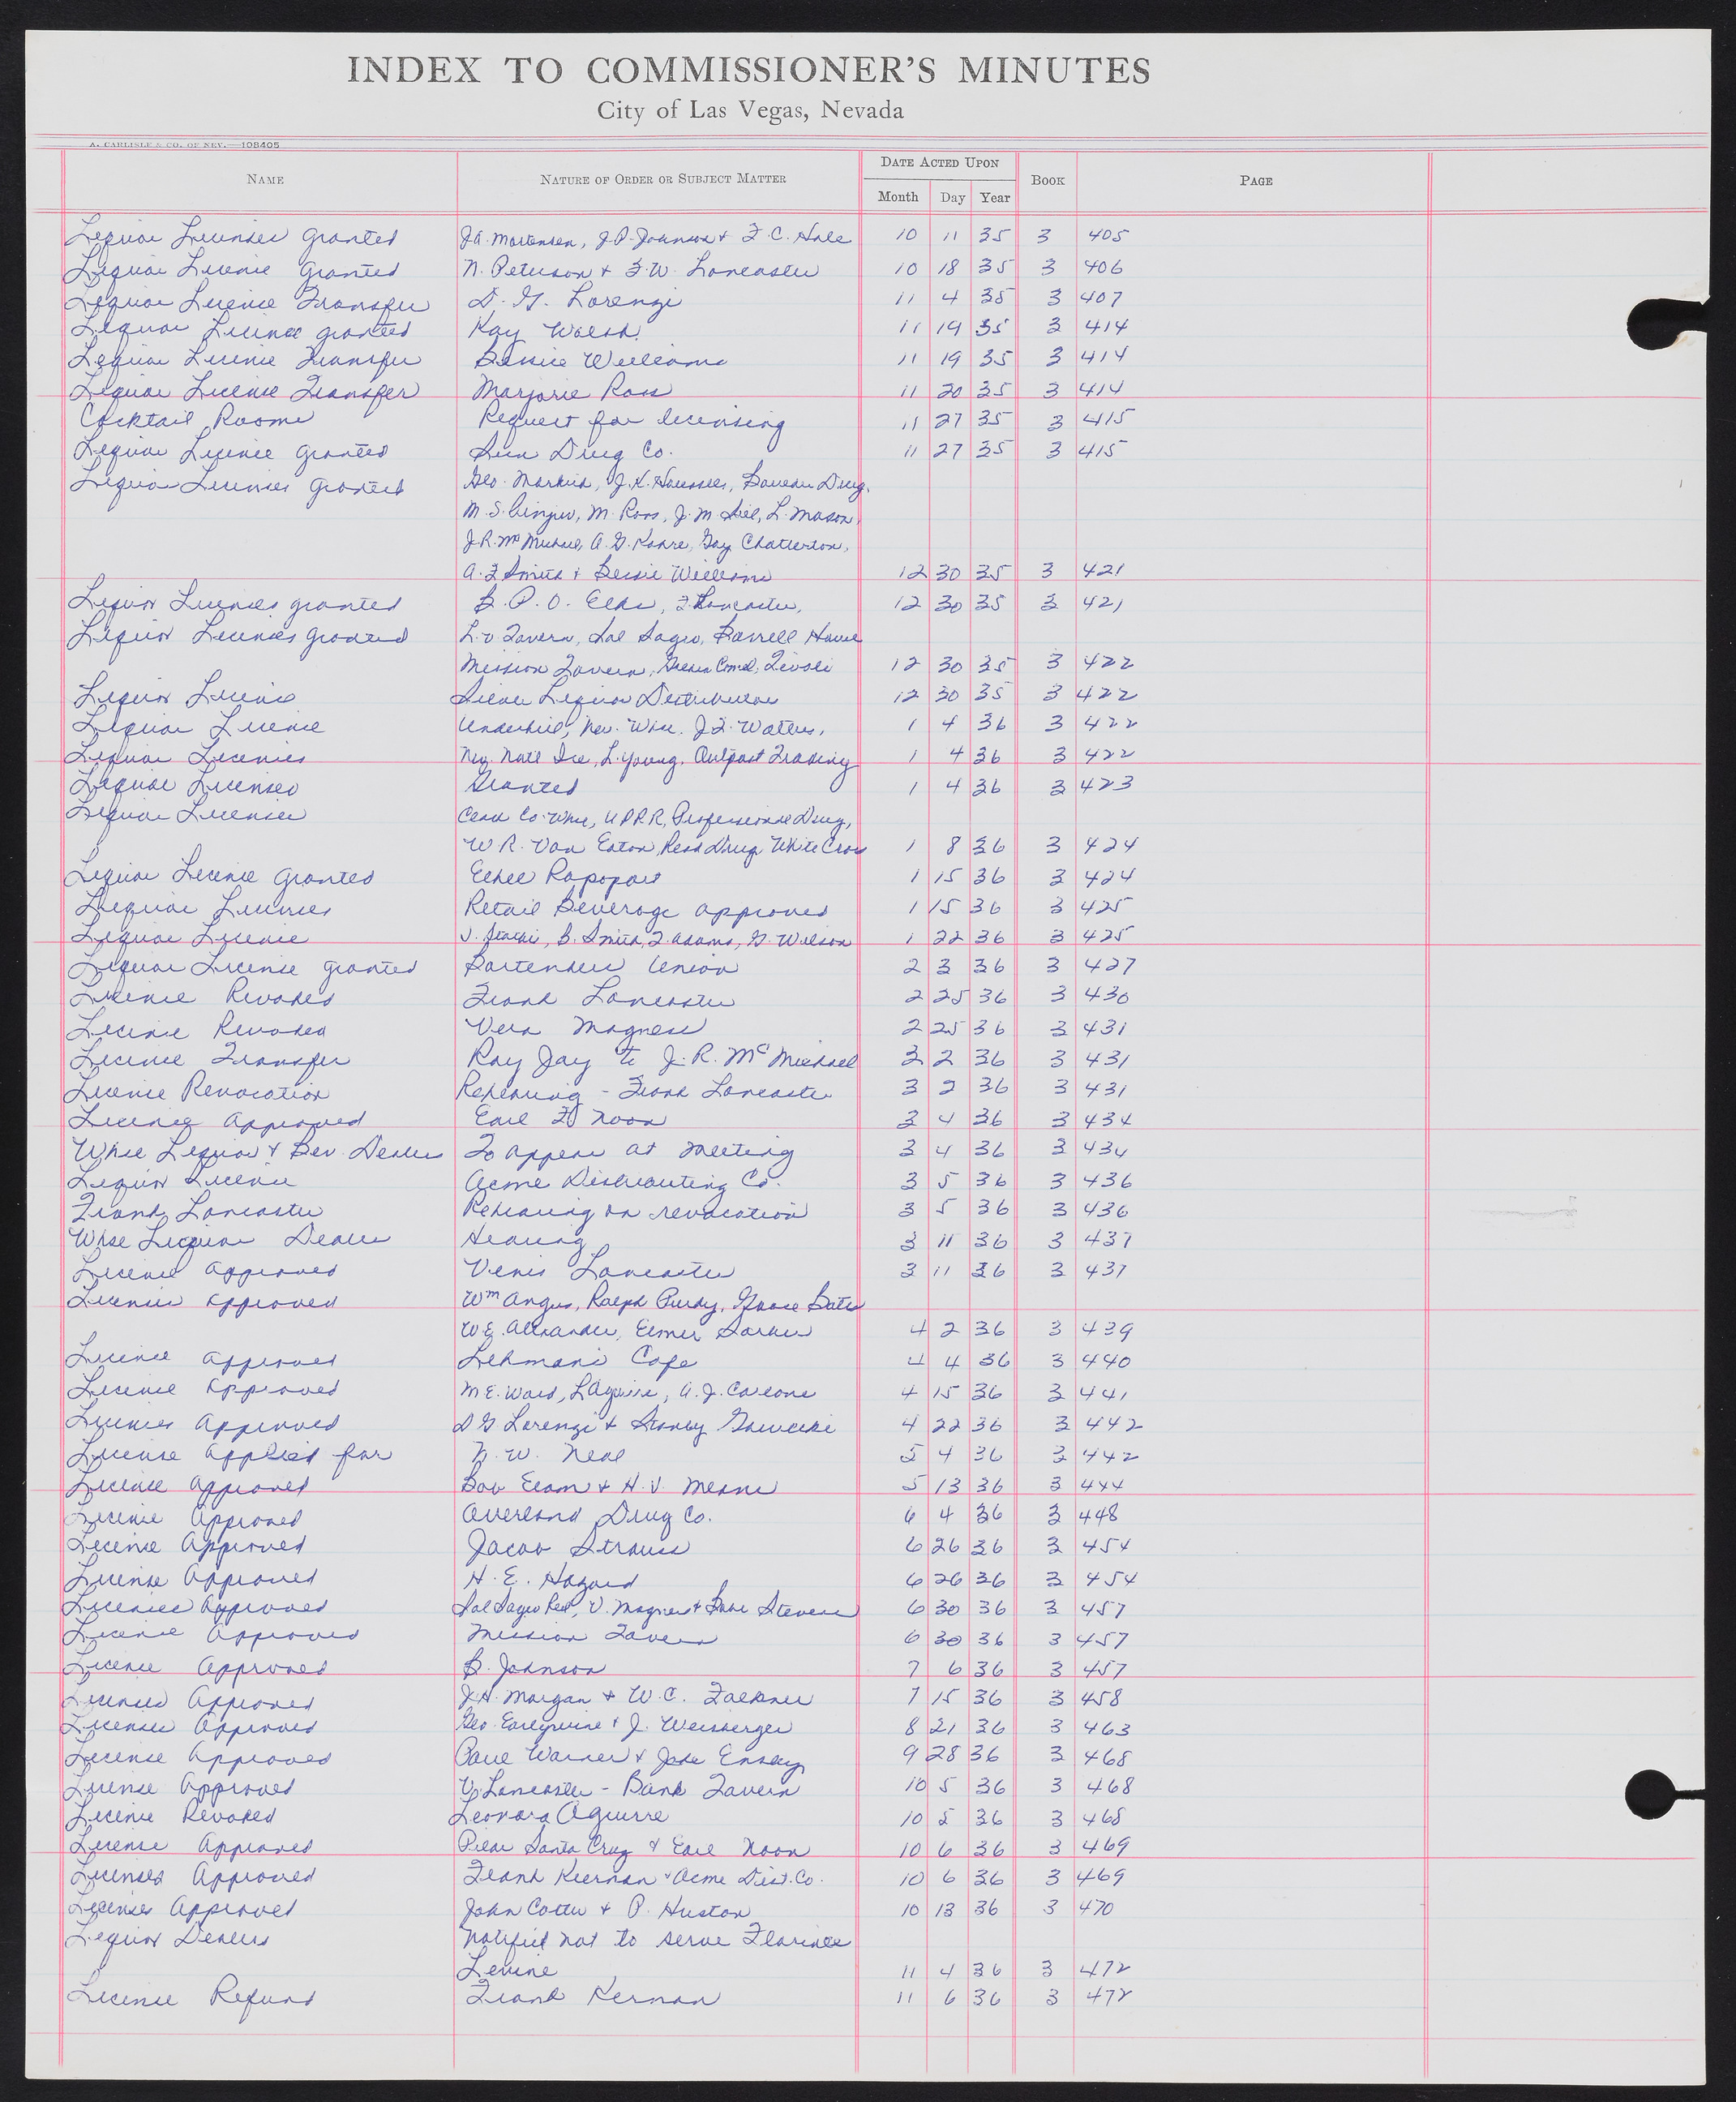 INDEX TO COMMISSIONER'S MINUTES
City of Las Vegas, Nevada
A. CARLISLE & CO. OF NEV.—108405
NAME NATURE OF ORDER OR SUBJECT MATTER DATE ACTED UPON BOOK PAGE
Month Day Year
Liquor Licenses granted J.A. Mortensen, J.P. Johnson & F.C. Hale 10 11 35 3 405
Liquor License granted N. Peterson & F.W. Lancaster 10 18 35 3 406
Liquor License Transfer D. G. Lorenzi 11 4 35 3 407
Liquor License granted Kay Walsh 11 19 35 3 414
Liquor License Transfer Bessie Williams 11 19 35 3 414
Liquor License Transfer Marjorie Ross 11 20 35 3 414
Cocktail Rooms Request for licensing 11 27 35 3 415
Liquor License granted Sun Drug Co. 11 27 35 3 415
Liquor Licenses granted Geo. J.K. Houssels, Drug,
M.S. M. Ross, J.M. L. Mason,
J.R. McMichael, A.G. Gay Chatterton,
A.F. Smith & Bessie Williams 12 30 35 3 421
Liquor Licenses granted B. P. O. Elks, F. Lancaster, 12 30 35 3 421
Liquor Licenses granted L.V. Tavern, Sal Sagev, Barrell House
Mission Tavern, Green Camel, Tivoli 12 30 35 3 422
Liquor License Liquor Distributor 12 30 35 3 422
Liquor License Underhill, Nev. Whse. J.F. Watters, 1 4 36 3 422
Liquor Licenses Nev. Natl Ice, L. Young, Outpost Trading 1 4 36 3 422
Liquor Licenses Granted 1 4 36 3 423
Liquor Licenses Clark Co. Whse, UPRR, Professional Drug,
W R. Van Eaton, Rexa Drug White Cross 1 8 36 3 424
Liquor License granted Ethel Rapoport 1 15 36 3 424
Liquor Licenses Retail Beverage approved 1 15 36 3 425
Liquor License B. Smith, F. Adams, G. Wilson 1 22 36 3 425
Liquor License granted Bartenders Union 2 3 36 3 427
License Revoked Frank Lancaster 2 25 36 3 430
License Revoked Vera Magness 2 25 36 3 431
License Transfer Ray Jay to J. R. McMichael 3 2 36 3 431
License Revocation Rehearing - Frank Lancaster 3 2 36 3 431
License Approved Earl F. Noon 3 4 36 3 434
Whse Liquor & Bev. Dealers To appear at meeting 3 4 36 3 434
Liquor License Acme Distributing Co. 3 5 36 3 436
Frank Lancaster Rehearing on revocation 3 5 36 3 436
Whse Liquor Dealer Hearing 3 11 36 3 437
License approved Venis Lancaster 3 11 36 3 437
Licenses approved Wm Angus, Ralph Purdy, Bates
W.E. Alexander, Elmer 4 2 36 3 439
License approved Lehmans Cafe 4 4 36 3 440
License approved M E. Ward, L Aguirre, A. J. 4 15 36 3 441
Licenses approved D G Lorenzi & Stanley 4 22 36 3 442
License applied for N. W. Neal 5 4 36 3 442
License approved Bob Elam & H. V. 5 13 36 3 444
License Approved Overland Drug Co. 6 4 36 3 448
License Approved Jacob Strauss 6 26 36 3 454
License Approved H. E. Hazard 6 26 36 3 454
Licenses Approved Sal Sagev V. Magness & Stevens 6 30 36 3 457
License Approved Mission Tavern 6 30 36 3 457
License Approved B. Johnson 7 6 36 3 457
Licenses Approved J.H. Morgan & W. C. Falkner 7 15 36 3 458
Licenses Approved Geo. Earlywine & J. Weisberger 8 21 36 3 463
License Approved Paul Warner & Jake Ensley 9 28 36 3 468
License Approved V. Lancaster - Bank Tavern 10 5 36 3 468
License Revoked Leonora Aguirre 10 5 36 3 468
License Approved Pilar Santa Cruz & Earl Noon 10 6 36 3 469
Licenses Approved Frank Kiernan & Acme Dist. Co. 10 6 36 3 469
Licenses Approved John Cotter & P. Huston 10 13 36 3 470
Liquor Dealers Notified not to serve Florence
Levine 11 4 36 3 472
License Refund Frank Kernan 11 6 36 3 472